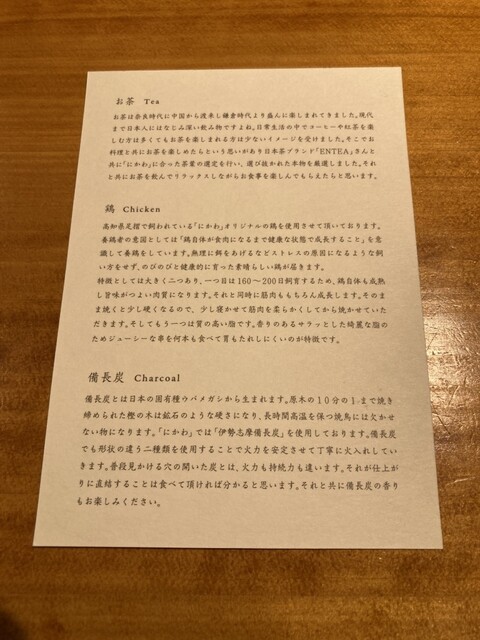 お茶 Tea
お茶は奈良時代に中国から渡来し鎌倉時代より盛んに楽しまれてきました。現代
まで日本人にはなじみ深い飲み物ですよね。日常生活の中でコーヒーや紅茶を楽
しむ方は多くてもお茶を楽しまれる方は少ないイメージを受けました。そこでお
料理と共にお茶を楽しめたらという思いがあり日本茶ブランド「ENTEA」さんと
共に「にかわ」に合った茶葉の選定を行い、選び抜かれた本物を厳選しました。それ
と共にお茶を飲んでリラックスしながらお食事を楽しんでもらえたらと思います。
鶏 Chicken
高知県足摺で飼われている「にかわ」オリジナルの鶏を使用させて頂いております。
養鶏者の意図としては「鶏自体が食肉になるまで健康な状態で成長すること」を意
識して養鶏をしています。無理に餌をあげるなどストレスの原因になるような飼
い方をせず、のびのびと健康的に育った素晴らしい鶏が届きます。
特徴としては大きく二つあり、一つ目は160〜200日飼育するため、鶏自体も成熟
し旨味がつよい肉質になります。それと同時に筋肉ももちろん成長します。そのま
ま焼くと少し硬くなるので、少し寝かせて筋肉を柔らかくしてから焼かせていた
だきます。そしてもう一つは質の高い脂です。香りのあるサラッとした綺麗な脂の
ためジューシーな串を何本も食べて胃もたれしにくいのが特徴です。
備長炭 Charcoal
備長炭とは日本の固有種ウバメガシから生まれます。原木の10分の1まで焼き
締められた樫の木は鉱石のような硬さになり、長時間高温を保つ焼鳥には欠かせ
ない物になります。「にかわ」では「伊勢志摩備長炭」を使用しております。備長炭
でも形状の違う二種類を使用することで火力を安定させて丁寧に火入れしてい
きます。普段見かける穴の開いた炭とは、火力も持続力も違います。それが仕上が
りに直結することは食べて頂ければ分かると思います。それと共に備長炭の香り
もお楽しみください。